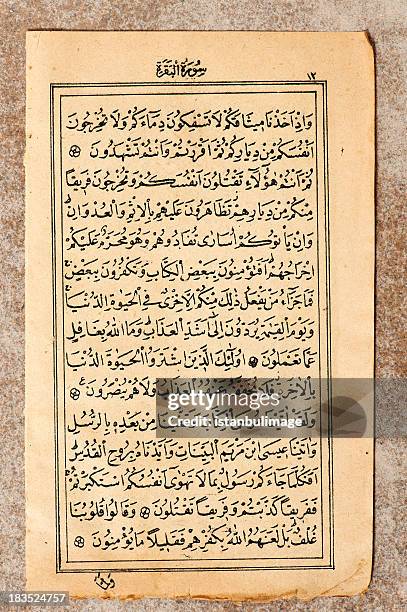 سُورَةُ الْبَقَرَةِ
١٢
وَاِذْ اَخَذْنَا مِيثَاقَكُمْ لَا تَسْفِكُونَ دِمَاءَكُمْ وَلَا تُخْرِجُونَ
اَنْفُسَكُمْ مِنْ دِيَارِكُمْ ثُمَّ اَقْرَرْتُمْ وَاَنْتُمْ تَشْهَدُونَ
ثُمَّ اَنْتُمْ هٰؤُلَاءِ تَقْتُلُونَ اَنْفُسَكُمْ وَتُخْرِجُونَ فَرِيقًا
مِنْكُمْ مِنْ دِيَارِهِمْ تَظَاهَرُونَ عَلَيْهِمْ بِالْاِثْمِ وَالْعُدْوَانِ
وَاِنْ يَأْتُوكُمْ اُسَارٰى تُفَادُوهُمْ وَهُوَ مُحَرَّمٌ عَلَيْكُمْ
اِخْرَاجُهُمْ اَفَتُؤْمِنُونَ بِبَعْضِ الْكِتَابِ وَتَكْفُرُونَ بِبَعْضٍ
فَمَا جَزَاءُ مَنْ يَفْعَلُ ذٰلِكَ مِنْكُمْ اِلَّا خِزْيٌ فِي الْحَيٰوةِ الدُّنْيَا
وَيَوْمَ الْقِيٰمَةِ يُرَدُّونَ اِلٰى اَشَدِّ الْعَذَابِ وَمَا اللّٰهُ بِغَافِلٍ
عَمَّا تَعْمَلُونَ اُولٰئِكَ الَّذِينَ اشْتَرَوُا الْحَيٰوةَ الدُّنْيَا
بِالْاٰخِرَةِ فَلَا الْعَذَابُ وَلَا هُمْ يُنْصَرُونَ
وَلَقَدْ مِنْ بَعْدِهِ بِالرُّسُلِ
وَاٰتَيْنَا عِيسَى ابْنَ مَرْيَمَ الْبَيِّنَاتِ وَاَيَّدْنَاهُ بِرُوحِ الْقُدُسِ
اَفَكُلَّمَا جَاءَكُمْ رَسُولٌ بِمَا لَا تَهْوٰى اَنْفُسُكُمُ اسْتَكْبَرْتُمْ
فَفَرِيقًا كَذَّبْتُمْ وَفَرِيقًا تَقْتُلُونَ وَقَالُوا قُلُوبُنَا
غُلْفٌ بَلْ لَعَنَهُمُ اللّٰهُ بِكُفْرِهِمْ فَقَلِيلًا مَا يُؤْمِنُونَ
gettyimages
Credit: istanbulimage
183524757